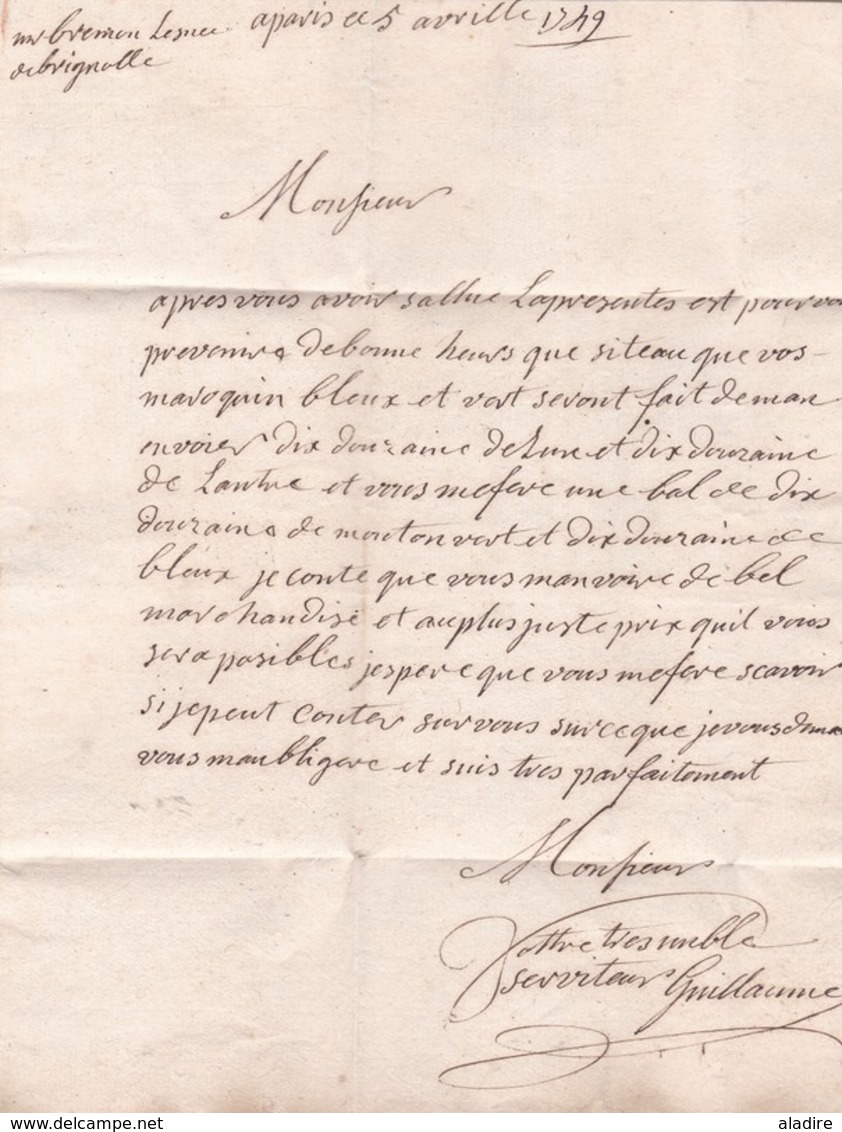 a paris ce 5 avrille 1749
mr bremon Lesnee
de brignolle
Monsieur
apres vous avoir sallue Lapresentes est pour vou
prevenire de bonne heurs que siteau que vos
maroquin bleux et vert seront fait deman
envoier dix douzaine de Lune et dix douzaine
de Lautre et vous mefere une bal de dix
douzaine de mouton vert et dix douzaine de
bleux je conte que vous manvoire de bel
marchandise et auplus juste prix quil vous
sera posibles jespere que vous mefere scavoir
si je peut conter sur vous sur ce que je vous dema
vous maubligere et suis tres parfaitement
Monsieur
Vottre tres umble
serviteur Guillaume
delcampe.net
aladire